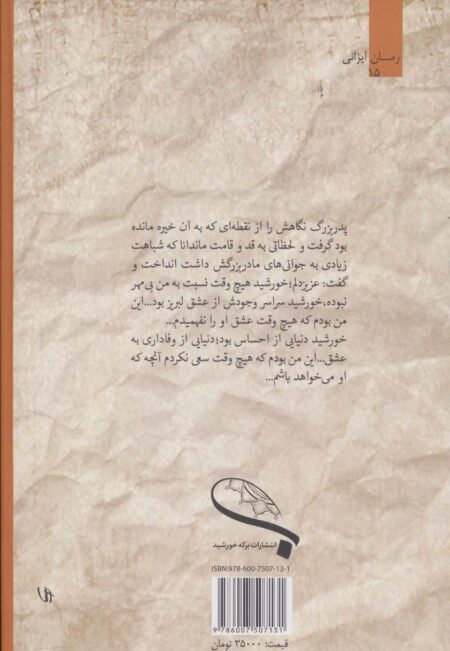 رمان ایرانی
۱۵
پدربزرگ نگاهش را از نقطه‌ای که به آن خیره مانده
بود گرفت و لحظاتی به قد و قامت ماندانا که شباهت
زیادی به جوانی‌های مادربزرگش داشت انداخت و
گفت: عزیزدلم؛خورشید هیچ وقت نسبت به من بی‌مهر
نبوده،خورشید سراسر وجودش از عشق لبریز بود...این
من بودم که هیچ وقت عشق او را نفهمیدم...
خورشید دنیایی از احساس بود؛دنیایی از وفاداری به
عشق...این من بودم که هیچ وقت سعی نکردم آنچه که
او می‌خواهد باشم...
انتشارات برکه خورشید
ISBN:978-600-7507-13-1
9 786007 507131
قیمت: ۳۵۰۰۰ تومان